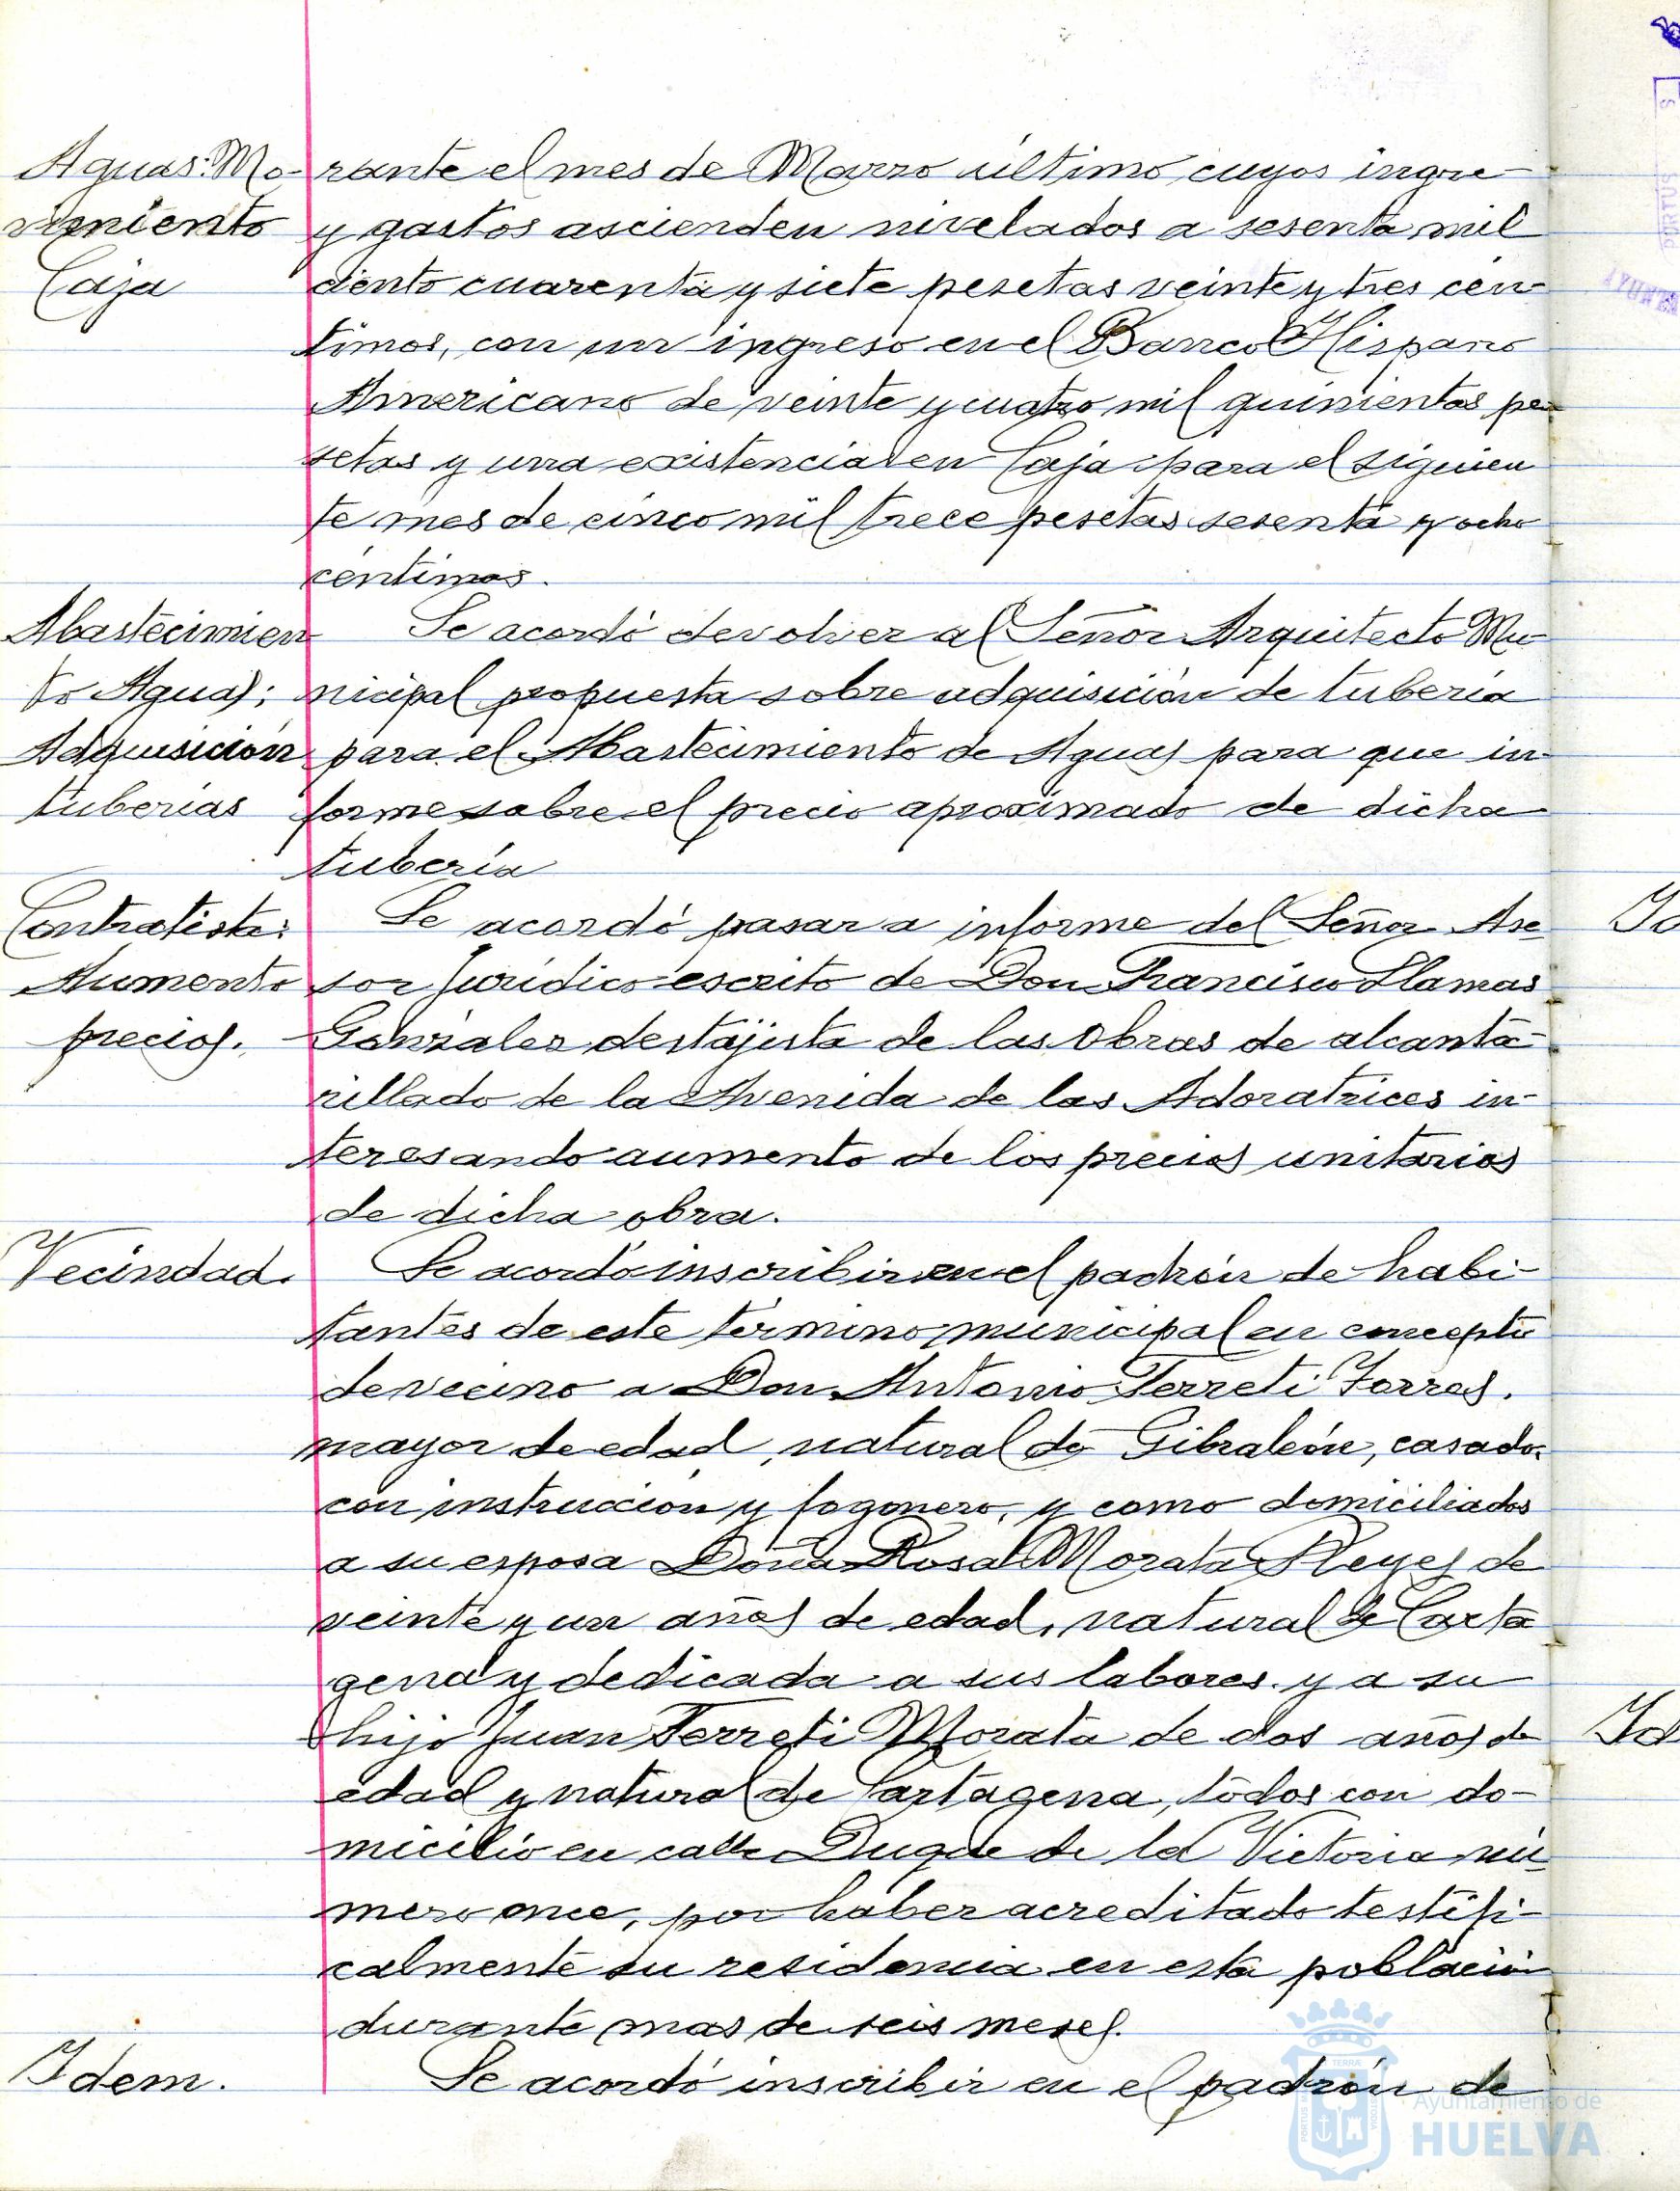 Aguas: Mo-
vimiento
Caja
rante el mes de Marzo último cuyos ingre-
y gastos ascienden nivelados a sesenta mil
ciento cuarenta y siete pesetas veinte y tres cén-
timos, con un ingreso en el Banco Hispano
Americano de veinte y cuatro mil quinientas pe-
setas y una existencia en Caja para el siguien
te mes de cinco mil trece pesetas sesenta y ocho
céntimos.
Abastecimien
to Aguas;
Adquisición
tuberias
Se acordó devolver al Señor Arquitecto Mu-
nicipal propuesta sobre adquisición de tubería
para el Abastecimiento de Aguas para que in-
forme sobre el precio aproximado de dicha
tubería
Contratista:
Aumento
precios.
Se acordó pasar a informe del Señor Ase-
sor Jurídico escrito de Don Francisco Llamas
Gonzalez destajista de las Obras de alcanta-
rillado de la Avenida de las Adoratrices in-
teresando aumento de los precios unitarios
de dicha obra.
Vecindad.
Se acordó inscribir en el padrón de habi-
tantes de este término municipal en concepto
de vecino a Don Antonio Ferreti Torres,
mayor de edad, natural de Gibraleón, casado,
con instrucción y fogonero, y como domiciliados
a su esposa Doña Rosa Morata Reyes de
veinte y un años de edad, natural de Carta
gena y dedicada a sus labores y a su
hijo Juan Ferreti Morata de dos años de
edad y natural de Cartagena, todos con do-
micilio en calle Duque de la Victoria nú-
mero once, por haber acreditado testifi-
calmente su residencia en esta población
durante mas de seis meses.
Idem.
Se acordó inscribir en el padrón de
Id
Ayuntamiento de
HUELVA